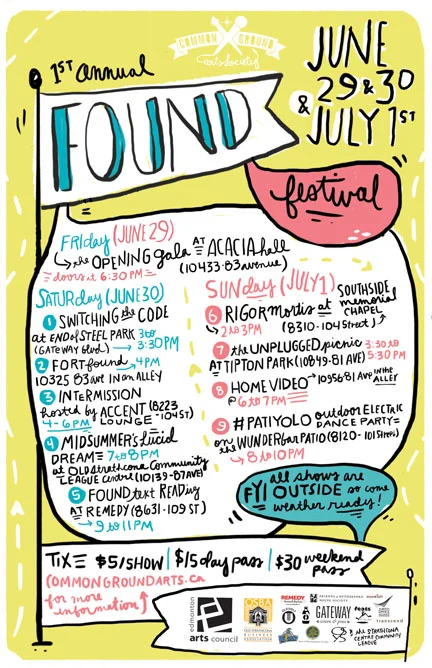 COMMON GROUND
arts society
1ST annual
FOUND
festival
JUNE
29 & 30
& JULY 1ST
FRIday (JUNE 29)
the OPENING gala AT ACACIA hall
(10433·83 avenue)
doors at 6:30 PM
SATURday (JUNE 30)
1 SWITCHING the CODE
at END of STEEL PARK 3 to
(GATEWAY blvd.) 3:30PM
2 FORT found 4PM
10325 83 ave IN an ALLEY
3 INTERMISSION
hosted by ACCENT (8223
4-6PM LOUNGE - 104 ST)
4 MIDSUMMER'S lucid
DREAM 7 to 8PM
at OLD strathcona Community
LEAGUE centre (10139·87 AVE)
5 FOUND text READING
AT REMEDY (8631·109 ST)
9 to 11PM
SUNday (JULY 1)
6 RIGOR mortis at SOUTHSIDE
memorial
CHAPEL
2 to 3PM (8310·104 Street)
7 the UNPLUGGED picnic 3:30 to
5:30 PM
AT TIPTON PARK (10849·81 AVE)
8 HOME VIDEO 10956 81 AVE IN THE
ALLEY
@ 6 to 7PM
9 #PATIYOLO outdoor ELECTRIC
DANCE PARTY
on the WUNDERbar PATIO (8120·101 Street)
8 to 10PM
FYI all shows are
OUTSIDE so come
weather ready!
TIX $5/SHOW | $15 day pass | $30 weekend
pass
COMMONGROUNDARTS.CA
for more
information
edmonton
arts council
OSBA
OLD STRATHCONA
BUSINESS
ASSOCIATION
REMEDY
GATEWAY
transcend
the STRATHCONA
CENTRE COMMUNITY
LEAGUE